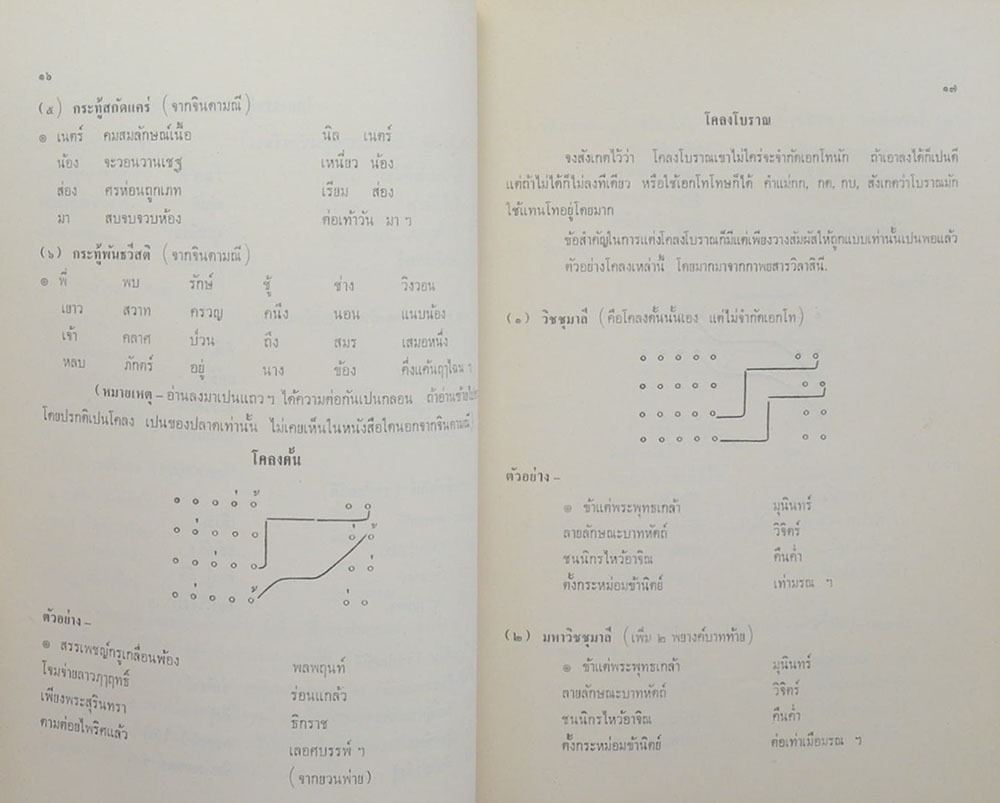 ๑๖
(๕) กระทู้สกัดแคร่ (จากจินดามณี)
๏ เนตร์ คมสมลักษณ์เนื้อ นิล เนตร์
น้อง จะวอนวานเชฐ เหนี่ยว น้อง
ส่อง ศรห่อนถูกเภท เรียม ส่อง
มา สบจบจวบห้อง ต่อเท้าวัน มา ฯ
(๖) กระทู้พันธวีสติ (จากจินดามณี)
๏ พี่ พบ รักษ์ ชู้ ช่าง วิงวอน
เยาว สวาท ครวญ คนึง นอน แนบน้อง
เจ้า คลาศ ป่วน ถึง สมร เสมอหนึ่ง
หลบ ภักตร์ อยู่ นาง ข้อง ดึ่งแค้นฤๅไฉน ฯ
(หมายเหตุ – อ่านลงมาเปนแถว ๆ ได้ความต่อกันเปนกลอน ถ้าอ่านซ้าย
โดยปรกติเปนโคลง เปนของปลาดเท่านั้น ไม่เคยเห็นในหนังสือใดนอกจากจินดามณี)
โคลงดั้น
ตัวอย่าง –
๏ สรรเพชญ์ภูเกลื่อนพ้อง พลพฤนท์
โจมจ่ายลาวฦๅฤทธิ์ ร่อนแกล้ว
เพียงพระสุรินทรา ธิกราช
ตามต่อยไพริศแล้ว เลอศบรรพ์ ฯ
(จากยวนพ่าย)
๑๗
โคลงโบราณ
จงสังเกตไว้ว่า โคลงโบราณเขาไม่ใคร่จะจำกัดเอกโทนัก ถ้าเอาลงได้ก็เปนดี
แต่ถ้าไม่ได้ก็ไม่ลงทีเดียว หรือใช้เอกโทโทษก็ได้ คำแม่กก, กด, กบ, สังเกตว่าโบราณมัก
ใช้แทนโทอยู่โดยมาก
ข้อสำคัญในการแต่งโคลงโบราณก็มีแต่เพียงวางสัมผัสให้ถูกแบบเท่านั้นเปนพอแล้ว
ตัวอย่างโคลงเหล่านี้ โดยมากมาจากกาพยสารวิลาสินี.
(๑) วิชชุมาลี (คือโคลงดั้นนั้นเอง แต่ไม่จำกัดเอกโท)
ตัวอย่าง –
๏ ข้าแต่พระพุทธเกล้า มุนินทร์
ลายลักษณะบาทหัตถ์ วิจิตร์
ชนนิกรไหว้อาจิณ คืนค่ำ
ตั้งกระหม่อมข้านิตย์ เท่ามรณ ฯ
(๒) มหาวิชชุมาลี (เพิ่ม ๒ พยางค์บาทท้าย)
๏ ข้าแต่พระพุทธเกล้า มุนินทร์
ลายลักษณะบาทหัตถ์ วิจิตร์
ชนนิกรไหว้อาจิณ คืนค่ำ
ตั้งกระหม่อมข้านิตย์ ต่อเท่าเมือมรณ ฯ